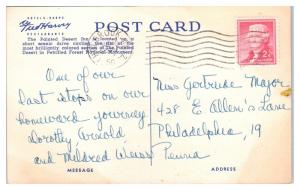 HOTELS-SHOPS
Fred Harvey
RESTAURANTS
POST CARD
The Painted Desert Inn is located on a
short scenic drive circling the rim of the
most brilliantly colored section of The Painted
Desert in Petrified Forest National Monument.
One of our
last stops on our
homeward journey
Dorothy Arnold
and Mildred Weiss
MESSAGE
Miss Gertrude Major
428 E Allen's Lane
Philadelphia, 19
Penna
ADDRESS